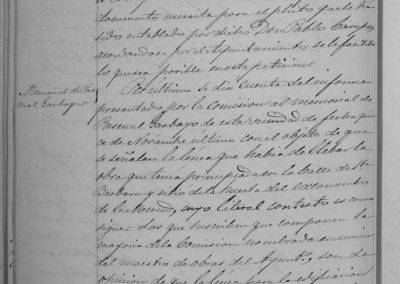 documento necesita para el pleito que le ha
sido entablado por dicho Don Pablo Campos,
acordandose por el Ayuntamiento se le facilite
lo que sea posible en esta peticion.
Memorial de Pascual Sarbago
Por ultimo se dio cuenta del informe
presentado por la Comision al memorial de
Pascual Sarbago de esta vecindad de fecha quin
ce de Noviembre ultimo con el objeto de que
se señalase la linea que habia de llebar la
obra que tenia principiada en la Calle de Sta
Barbara y sitio de la huerta del Exconvento
de la Merced, cuyo literal contesto es como
sigue= Los que suscriben que componen la
mayoria de la Comision nombrada en union
del maestro de obras del Ayunto, son de
opinion de que la linea para la edificacion